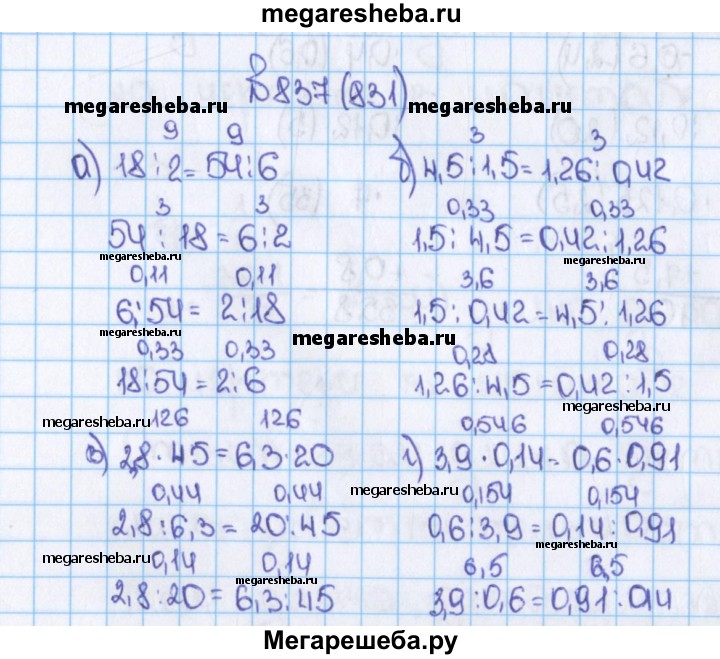 megaresheba.ru
№ 837 (831)
megaresheba.ru megaresheba.ru
9 9
а) 18 : 2 = 54 : 6
3 3
54 : 18 = 6 : 2
megaresheba.ru
0,11 0,11
6 : 54 = 2 : 18
megaresheba.ru
0,33 0,33
18 : 54 = 2 : 6
3 3
б) 4,5 : 1,5 = 1,26 : 0,42
0,33 0,33
1,5 : 4,5 = 0,42 : 1,26
megaresheba.ru
3,6 3,6
1,5 : 0,42 = 4,5 : 1,26
megaresheba.ru
0,28 0,28
1,26 : 4,5 = 0,42 : 1,5
megaresheba.ru
megaresheba.ru
126 126
в) 2,8 · 45 = 6,3 · 20
0,44 0,44
2,8 : 6,3 = 20 : 45
megaresheba.ru
0,14 0,14
megaresheba.ru
2,8 : 20 = 6,3 : 45
0,546 0,546
г) 3,9 · 0,14 = 0,6 · 0,91
megaresheba.ru
0,154 0,154
0,6 : 3,9 = 0,14 : 0,91
megaresheba.ru
6,5 6,5
3,9 : 0,6 = 0,91 : 0,14
Мегарешеба.ру